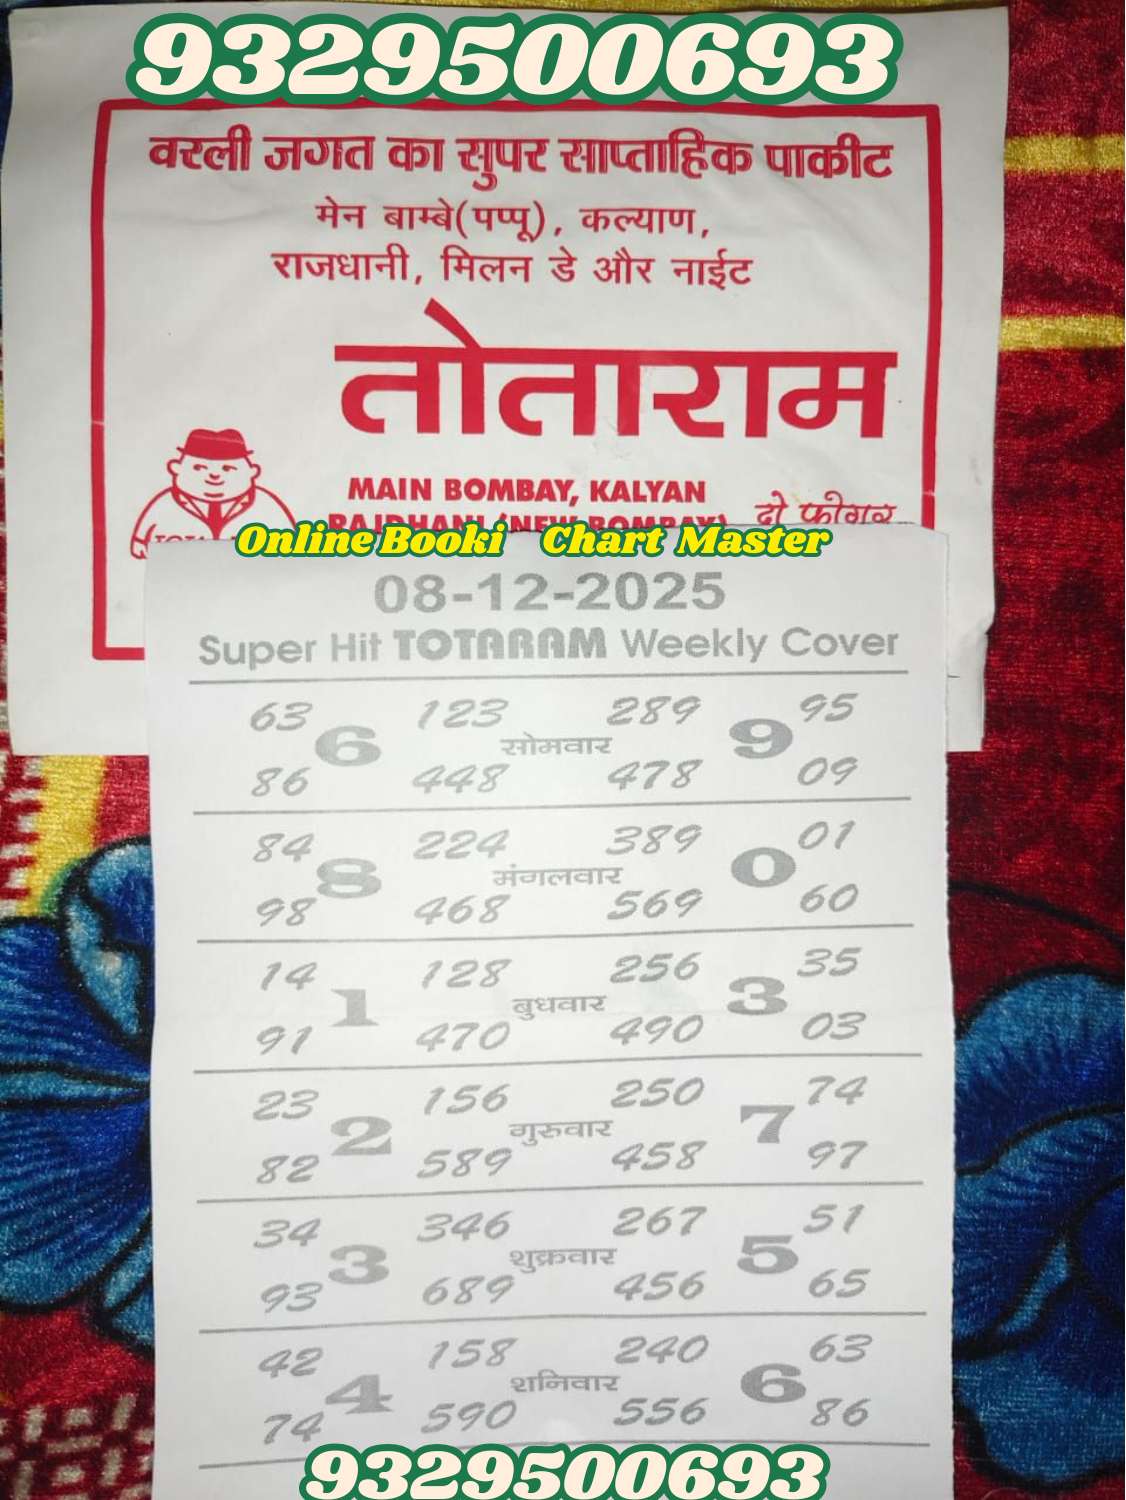 9329500693
वरली जगत का सुपर साप्ताहिक पाकीट
मेन बाम्बे(पप्पू), कल्याण,
राजधानी, मिलन डे और नाईट
तोताराम
MAIN BOMBAY, KALYAN
RAJDHANI (NEW BOMBAY)
दो फीगर
Online Booki Chart Master
08-12-2025
Super Hit TOTARAM Weekly Cover
63 123 289 95
6 सोमवार 9
86 448 478 09
84 224 389 01
8 मंगलवार 0
98 468 569 60
14 128 256 35
1 बुधवार 3
91 470 490 03
23 156 250 74
2 गुरुवार 7
82 589 458 97
34 346 267 51
3 शुक्रवार 5
93 689 456 65
42 158 240 63
4 शनिवार 6
74 590 556 86
9329500693